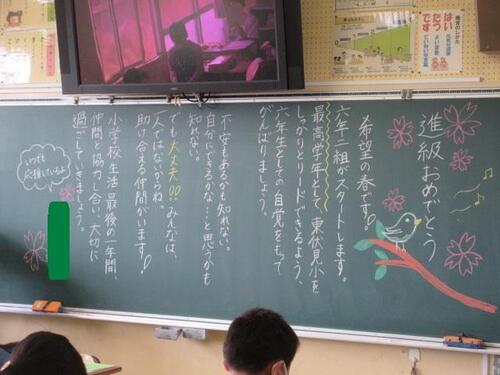 進級おめでとう
希望の春です!
六年二組がスタートします。
最高学年として、東伏見小を
しっかりとリードできるよう、
六年生としての自覚をもって
がんばりましょう。
不安もあるかも知れない。
自分にできるかな…と思うかも
知れない。
でも大丈夫!!みんなは、
一人ではないからね。
助け合える仲間がいます!
小学校生活最後の一年間、
仲間と協力し合い、大切に
過ごしていきましょう。
いつでも
応援しているよ
はい
です